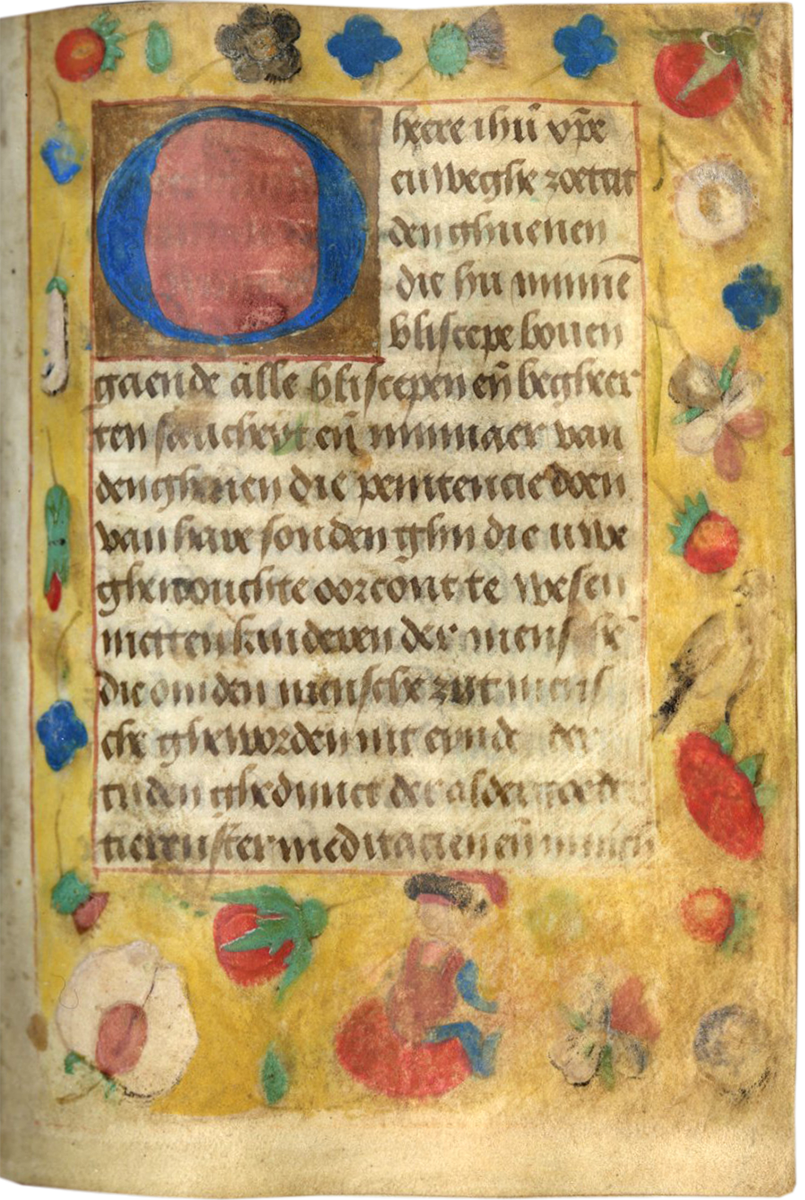 O heere ihũ xp̃e
euweghe zoeticit
den ghuenen
die hu minnē
bliscepe bouen
gaende alle bliscepen eñ begheer
ten salicheyt eñ minnaer van
denghenen die penitencie doen
van hare sonden ghij die uwe
ghenouchte oorcōnt te wesen
metten kinderen der mensche
die om den mensche zyt mens
che gheworden int eynde der
tijden ghedinct der
meditacien eñ